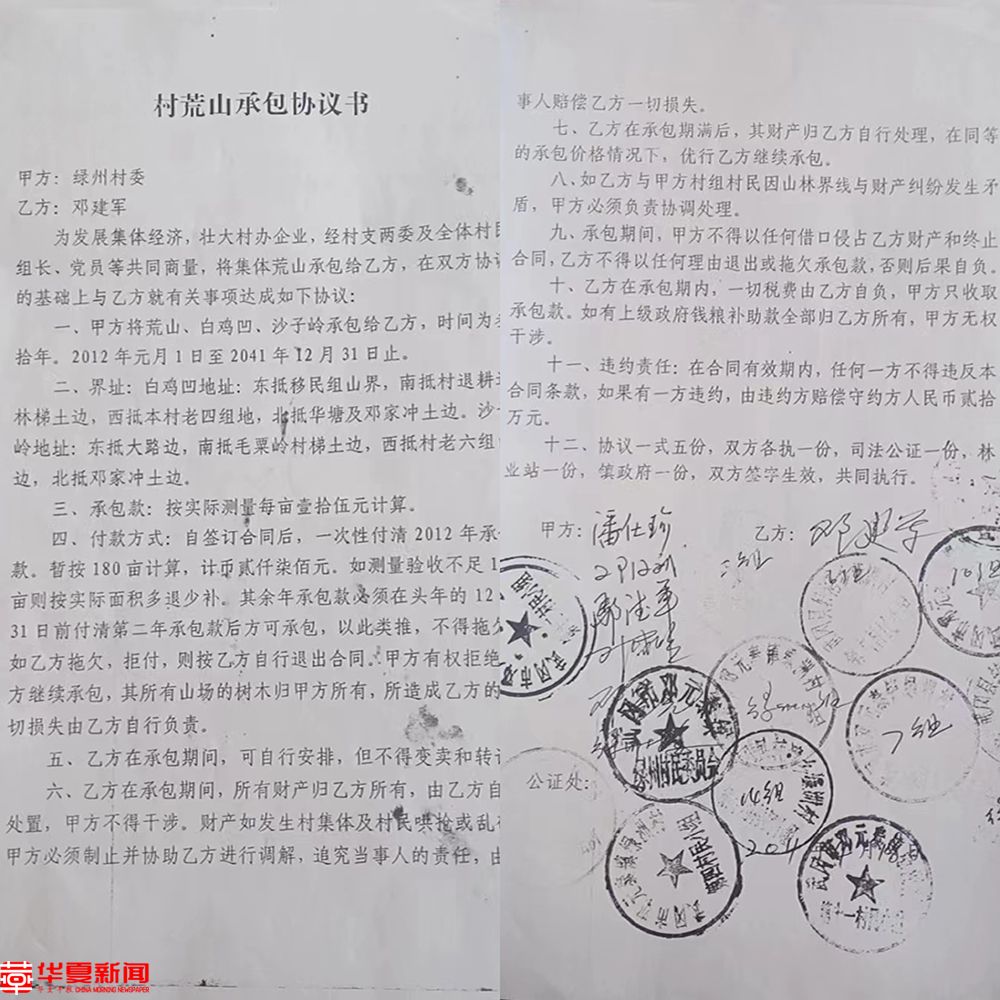 村荒山承包协议书
甲方：绿州村委
乙方：邓建军
为发展集体经济，壮大村办企业，经村支两委及全体村民
组长、党员等共同商量，将集体荒山承包给乙方，在双方协议
的基础上与乙方就有关事项达成如下协议：
一、甲方将荒山、白鸡凹、沙子岭承包给乙方，时间为叁
拾年。2012年元月1日至2041年12月31日止。
二、界址：白鸡凹地址：东抵移民组山界，南抵村退耕
林梯土边，西抵本村老四组地，北抵华塘及邓家冲土边。沙
岭地址：东抵大路边，南抵毛粟岭村梯土边，西抵村老六组
边，北抵邓家冲土边。
三、承包款：按实际测量每亩壹拾伍元计算。
四、付款方式：自签订合同后，一次性付清2012年承
款。暂按180亩计算，计币贰仟柒佰元。如测量验收不足1
亩则按实际面积多退少补。其余年承包款必须在头年的12
31日前付清第二年承包款后方可承包，以此类推，不得拖欠
如乙方拖欠，拒付，则按乙方自行退出合同。甲方有权拒绝
方继续承包，其所有山场的树木归甲方所有，所造成乙方的
切损失由乙方自行负责。
五、乙方在承包期间，可自行安排，但不得变卖和转
六、乙方在承包期间，所有财产归乙方所有，由乙方自
处置，甲方不得干涉。财产如发生村集体及村民哄抢或乱
甲方必须制止并协助乙方进行调解，追究当事人的责任，由
事人赔偿乙方一切损失。
七、乙方在承包期满后，其财产归乙方自行处理，在同等
的承包价格情况下，优行乙方继续承包。
八、如乙方与甲方村组村民因山林界线与财产纠纷发生矛
盾，甲方必须负责协调处理。
九、承包期间，甲方不得以任何借口侵占乙方财产和终止
合同，乙方不得以任何理由退出或拖欠承包款，否则后果自负。
十、乙方在承包期内，一切税费由乙方自负，甲方只收取
承包款。如有上级政府钱粮补助款全部归乙方所有，甲方无权
干涉。
十一、违约责任：在合同有效期内，任何一方不得违反本
合同条款，如果有一方违约，由违约方赔偿守约方人民币贰拾
万元。
十二、协议一式五份，双方各执一份，司法公证一份，林
业站一份，镇政府一份，双方签字生效，共同执行。
甲方：潘仕珍
乙方：邓建军
10组
7组
村民委员会
14组
公证处：
华夏新闻
CHINA MORNING NEWSPAPER